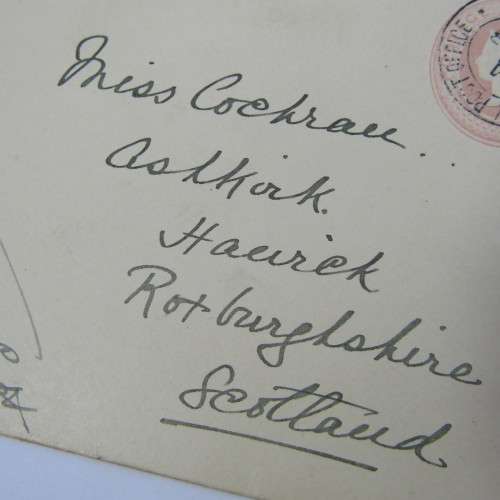 Miss Cochran..
Ashkirk.
Hawick
Roxburghshire
Scotland
POST OFFICE